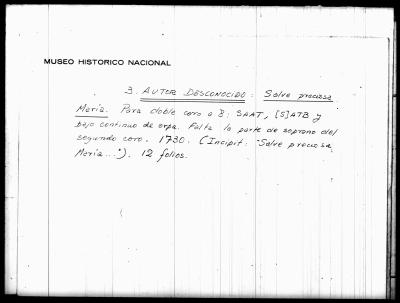 MUSEO HISTORICO NACIONAL
3. AUTOR DESCONOCIDO: Salve preciosa
María. Para doble coro a 8: SAAT, [S]ATB y
bajo continuo de arpa. Falta la parte de soprano del
segundo coro. 1730. (Incipit: "Salve preciosa
María..."). 12 folios.